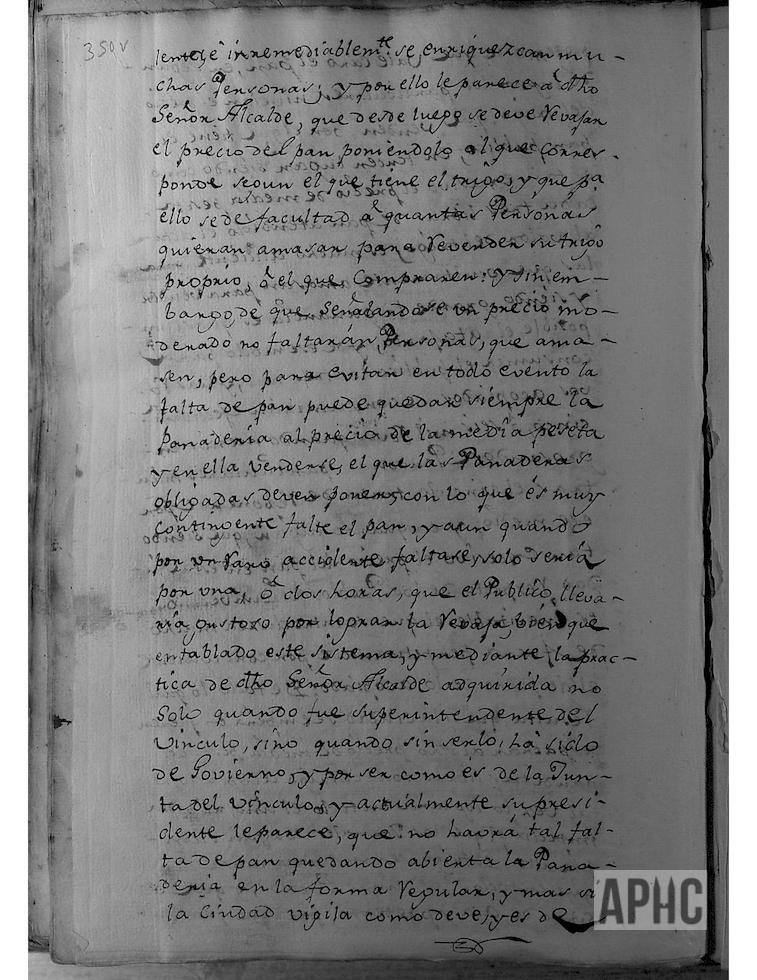 350v
lente, è irremediablem.te se enriquezcan mu-
chas Personas; y por ello le parece a dho
Señor Alcalde, que desde luego se deve Revajar
el precio del pan poniendolo al que corres-
ponde segun el que tiene el trigo, y que pa
ello se de facultad a quantas Personas
quieran amasar para Revender su trigo
proprio, o el que Compraren: y sin em-
bargo de que Señalandose un precio mo-
derado no faltarán Personas, que ama-
sen, pero para evitar en todo evento la
falta de pan puede quedar siempre la
Panaderia al precio de la media peseta
y en ella venderse, el que las Panaderas
obligadas deven poner, con lo que és muy
contingente falte el pan, y aun quando
por un Raro accidente faltase, solo seria
por una, ò dos horas, que el Publico lleva-
ria gustoso por lograr la Revaja, bien que
entablado este sistema, y mediante la prac-
tica de dho Señor Alcalde adquirida no
Solo quando fue superintendente del
vinculo, sino quando sin serlo, ha sido
de Govierno, y por ser como és de la Jun-
ta del vinculo, y actualmente su presi-
dente le parece, que no havrá tal fal-
ta de pan quedando abierta la Pana-
deria en la forma Regular, y mas si
la Ciudad vigila como deve, y es de
APHC